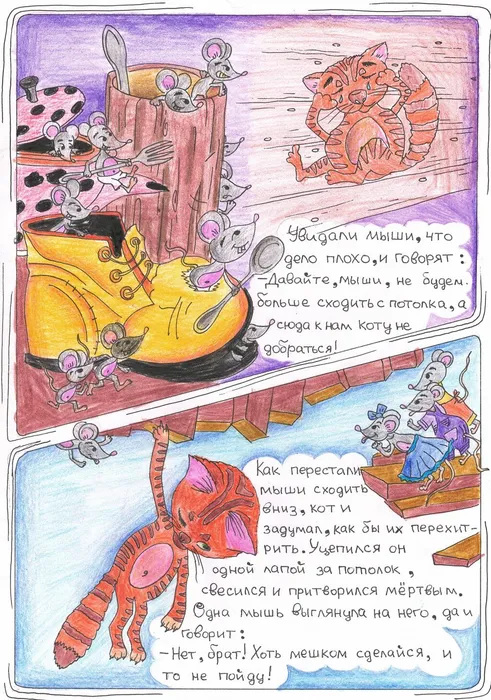 Увидали мыши, что
дело плохо, и говорят:
-Давайте, мыши, не будем
больше сходить с потолка, а
сюда к нам коту не
добраться!
Как перестали
мыши сходить
вниз, кот и
задумал, как бы их перехит-
рить. Уцепился он
одной лапой за потолок,
свесился и притворился мёртвым.
Одна мышь выглянула на него, да и
говорит:
-Нет, брат! Хоть мешком сделайся, и
то не пойду!